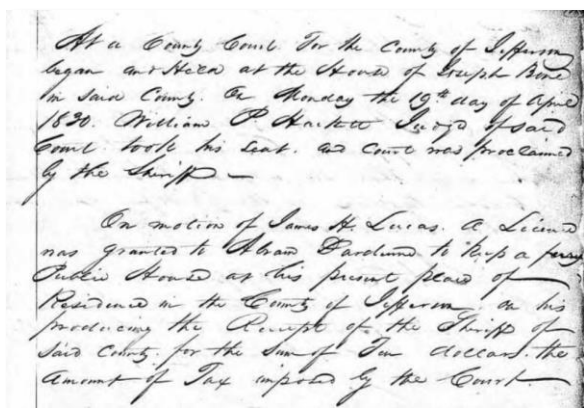 At a County Court For the County of Jefferson
began and Held at the House of Joseph Bone
in said County. On Monday the 19th day of April
1830. William P Hackett Judge of said
Court took his seat. and Court was proclaimed
by the Sheriff —
On motion of James H. Lucas. a Licence
was granted to Abram to keep a
Public House at his present place of
Residence in the County of Jefferson. on his
producing the Receipt of the Sheriff of
said County. for the Sum of Ten dollars. the
Amount of Tax imposed by the Court